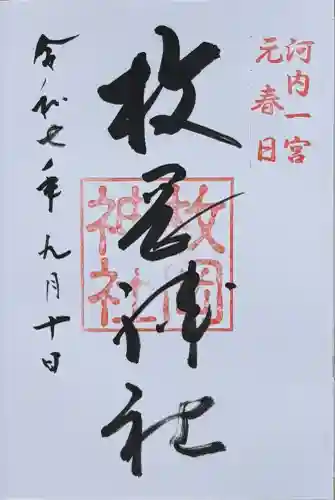 河内一宮
元春日
枚岡神社
枚岡
神社
令和七年九月十日